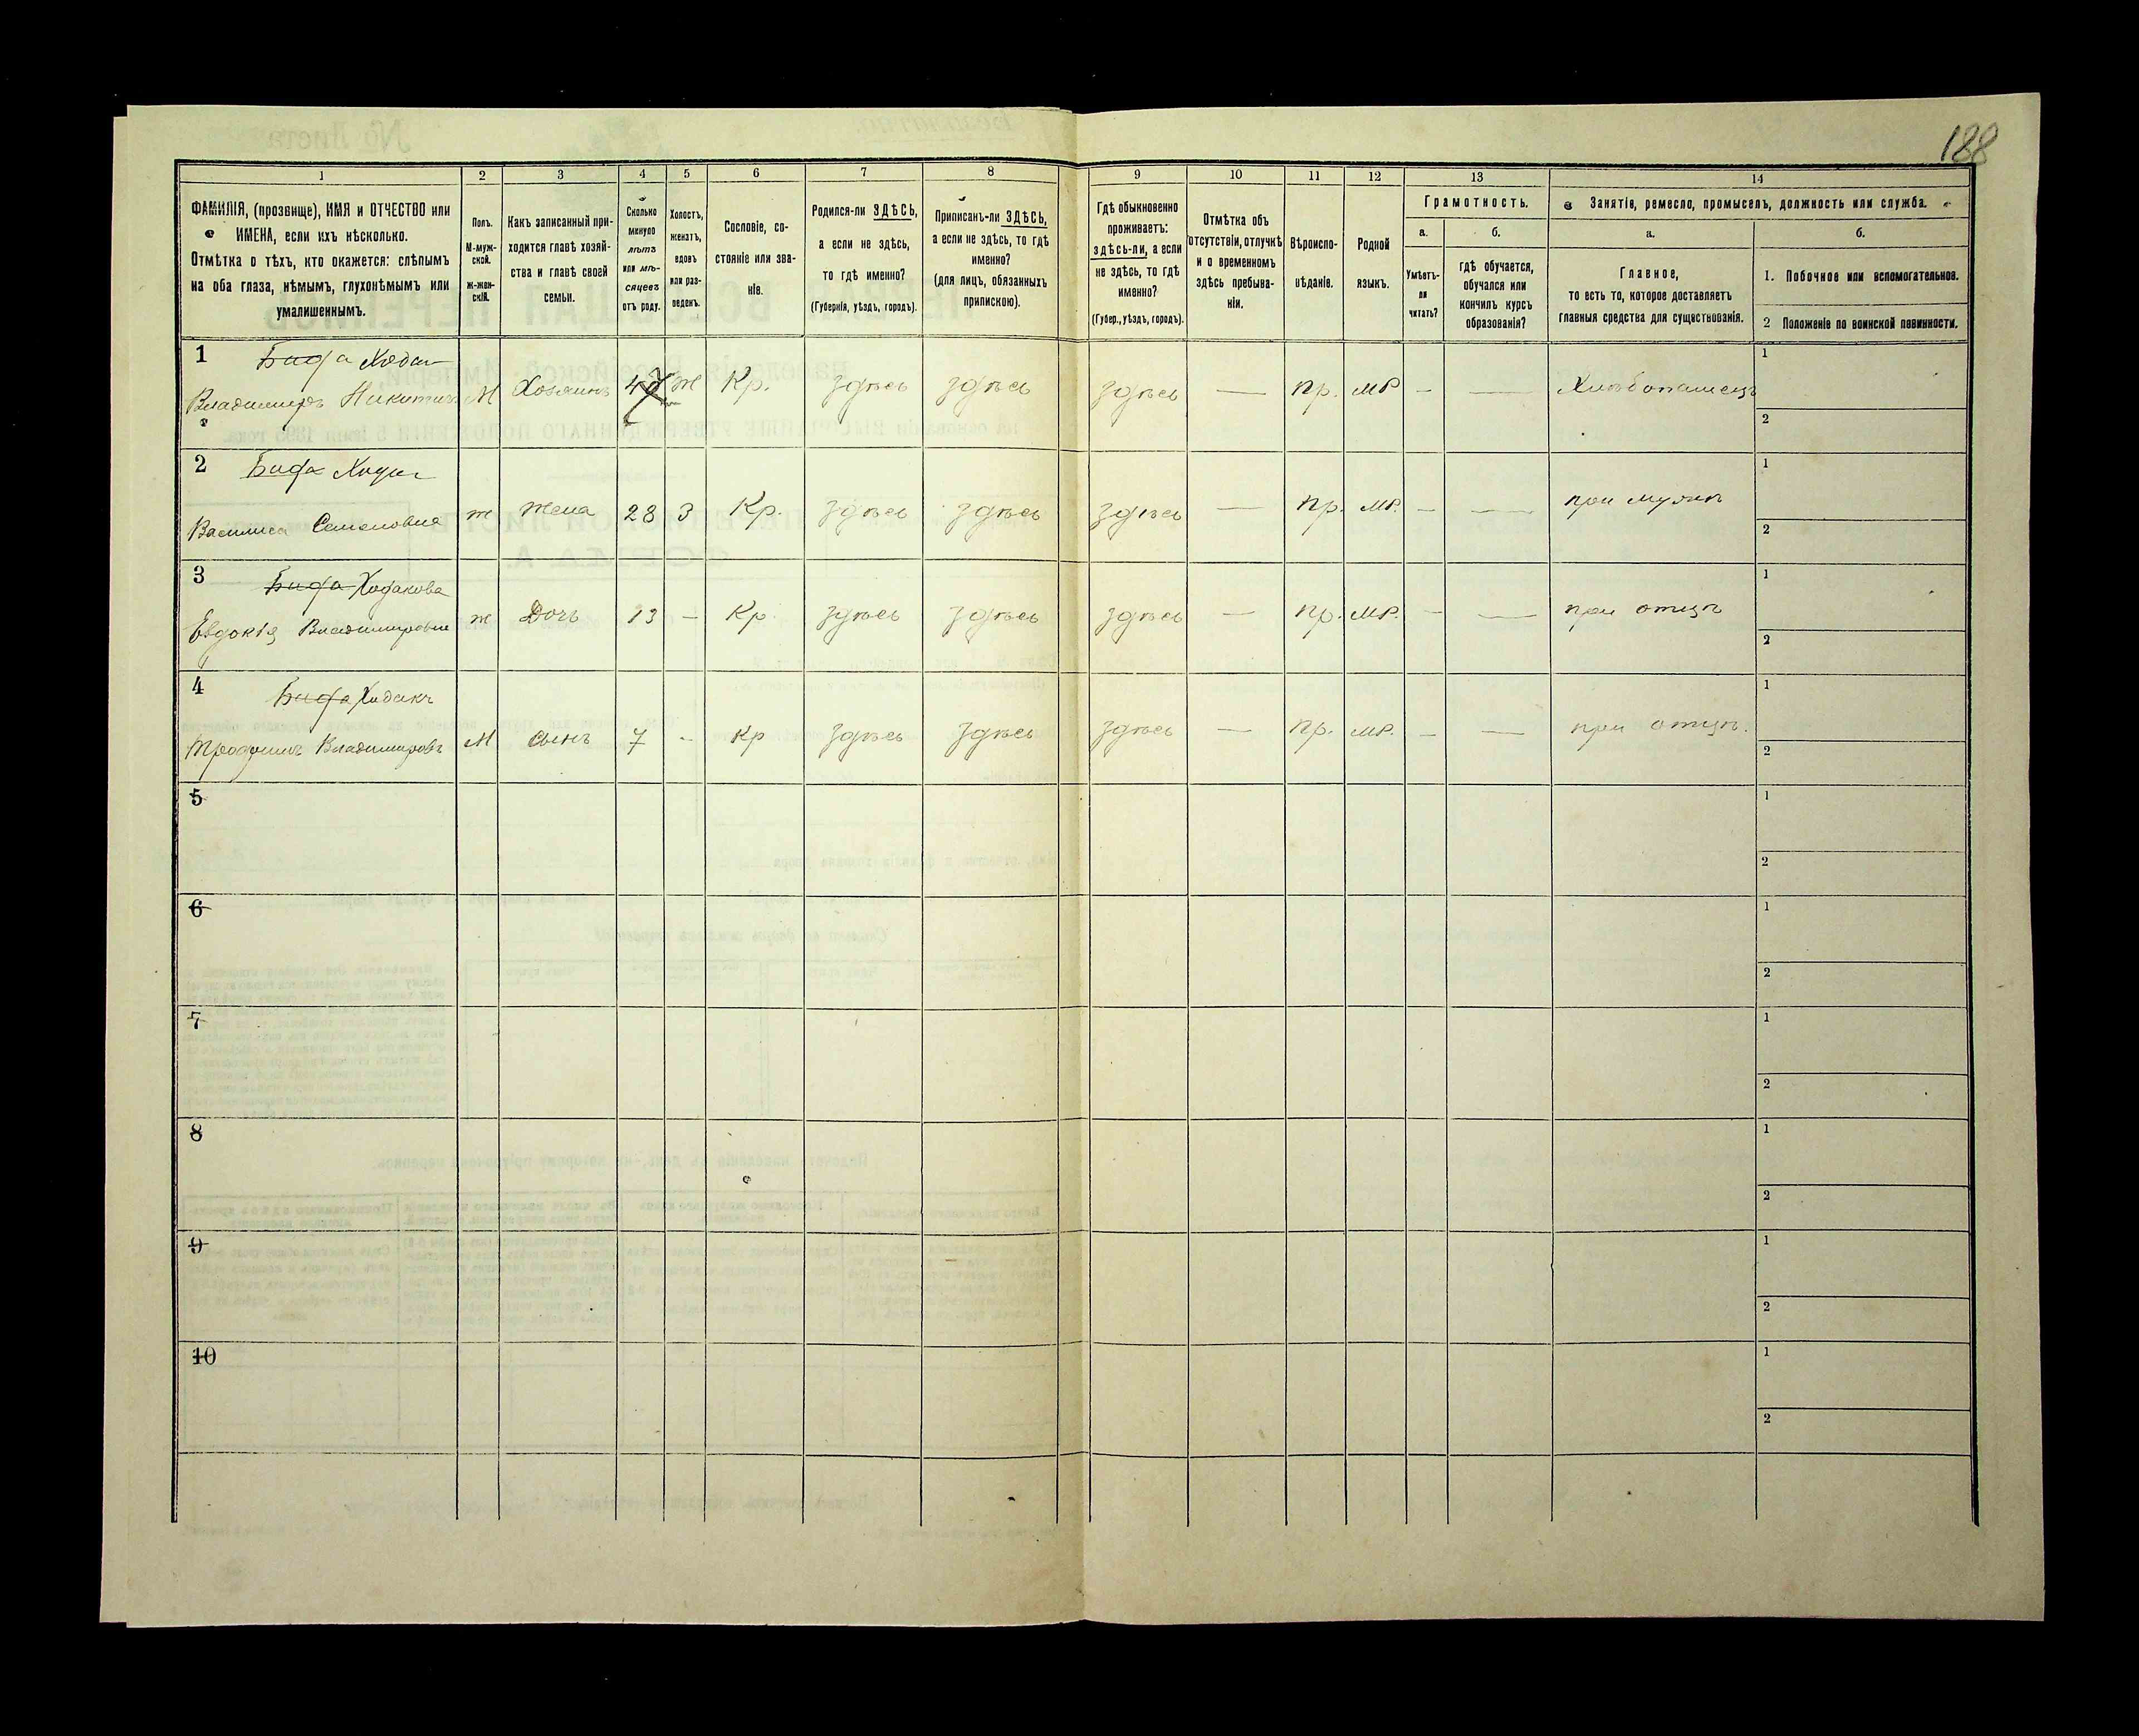 188
1
2
3
4
5
6
7
8
9
10
11
12
13
14
ФАМИЛІЯ, (прозвище), ИМЯ и ОТЧЕСТВО или
ИМЕНА, если ихъ нѣсколько.
Отмѣтка о тѣхъ, кто окажется: слѣпымъ
на оба глаза, нѣмымъ, глухонѣмымъ или
умалишеннымъ.
Полъ.
М-муж-
ской.
Ж-жен-
скій.
Какъ записанный при-
ходится главѣ хозяй-
ства и главѣ своей
семьи.
Сколько
минуло
лѣтъ
или мѣ-
сяцевъ
отъ роду.
Холостъ,
женатъ,
вдовъ
или раз-
веденъ.
Сословіе, со-
стояніе или зва-
ніе.
Родился-ли ЗДѢСЬ,
а если не здѣсь,
то гдѣ именно?
(Губернія, уѣздъ, городъ).
Приписанъ-ли ЗДѢСЬ,
а если не здѣсь, то гдѣ
именно?
(для лицъ, обязанныхъ
припискою).
Гдѣ обыкновенно
проживаетъ:
здѣсь-ли, а если
не здѣсь, то гдѣ
именно?
(Губер., уѣздъ, городъ).
Отмѣтка объ
отсутствіи, отлучкѣ
и о временномъ
здѣсь пребыва-
ніи.
Вѣроиспо-
вѣданіе.
Родной
языкъ.
Грамотность.
а.
Умѣетъ-
ли
читать?
б.
гдѣ обучается,
обучался или
кончилъ курсъ
образованія?
Занятіе, ремесло, промыселъ, должность или служба.
а.
Главное,
то есть то, которое доставляетъ
главныя средства для существованія.
б.
1. Побочное или вспомогательное.
2 Положеніе по воинской повинности.
1 Бида
Владимиръ Никитичъ М Хозяинъ ж Кр. здѣсь здѣсь здѣсь — пр. МР - — Хлѣбопашецъ
1
2
2 Бида
Василиса Семеновна ж жена 28 З Кр. здѣсь здѣсь здѣсь — пр. МР. - — при мужѣ
1
2
3 Бида Ходакова
Евдокія Владимировна ж Дочь 13 - Кр. здѣсь здѣсь здѣсь — пр. МР. - — при отцѣ
1
2
4 Бида Ходакъ
Трофимъ Владимировъ М Сынъ 7 - Кр здѣсь здѣсь здѣсь — пр. МР. - — при отцѣ.
1
2
5
1
2
6
1
2
7
1
2
8
1
2
9
1
2
10
1
2